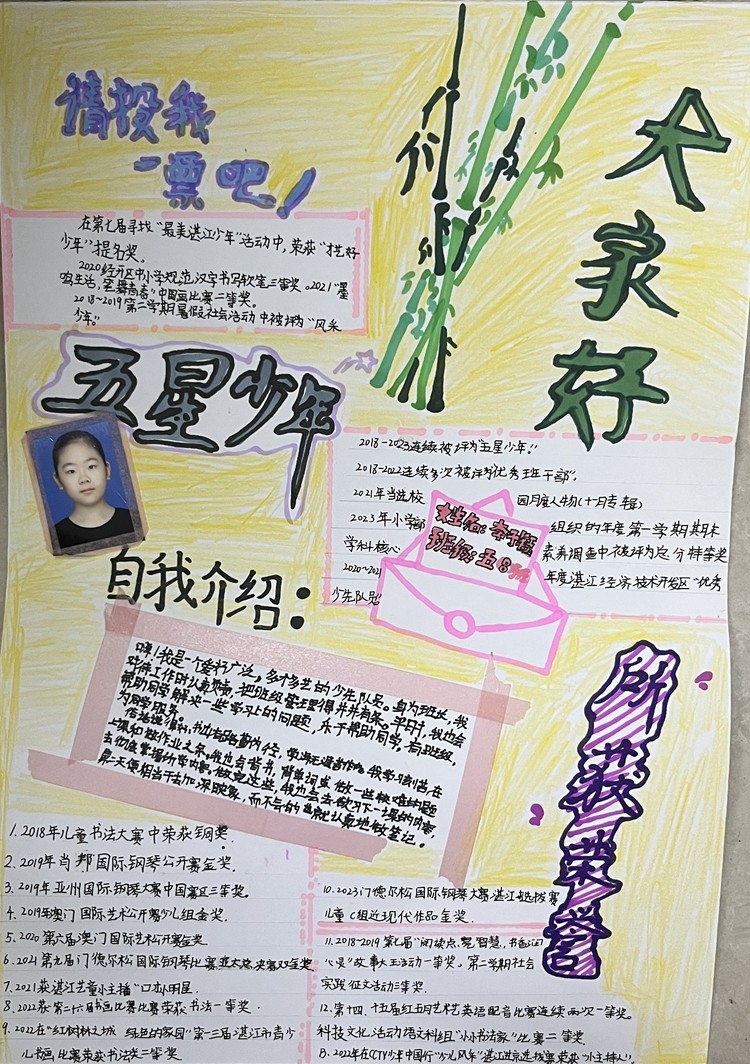 请投我
一票吧！
大家好
在第七届寻找“最美湛江少年”活动中，荣获“才艺好
少年”提名奖。
2020经开区中小学规范汉字书写软笔三等奖。2021“墨
鸣生活，笔舞青春”中国画比赛二等奖。
2018~2019第二学期暑假社会活动中被评为“风采
少年。”
五星少年
2018-2023连续被评为“五星少年。”
2018-2022连续多次被评为优秀班干部”。
2021年当选校 园月度人物（十月专辑）
2023年小学部 组织的年度第一学期期末
学科核心 素养调查中被评为总分特等奖
2020~2021 年度湛江经济技术开发区“优秀
少先队员”
姓名：李子
班级：五8
自我介绍：
嗨！我是一个爱好广泛，多才多艺的少先队员。身为班长，我
对待工作时认真负责，把班级管理得井井有条。平时，我也会
帮助同学解决一些学习上的问题，乐于帮助同学，为班级，
为同学服务。
俗话说得好：书山有路勤为径，学海无涯苦作舟。我学习刻苦，在
上课和做作业之余，我也会背书，背单词或做一些较难的题
去彻底掌握所学内容。做完这些，我也会去做预习下一课的内容，
第二天便相当于去加深映象，而不会的，就认真地做笔记。
所获荣誉
1. 2018年儿童书法大赛中荣获铜奖.
2. 2019年肖邦国际钢琴公开赛金奖.
3. 2019年亚州国际钢琴大赛中国赛区三等奖.
4. 2019年澳门国际艺术公开赛少儿组金奖.
5. 2020第六届澳门国际艺术公开赛金奖
6. 2021第九届门德尔松国际钢琴比赛亚太总决赛双金奖
7. 2021获湛江艺童小主播“口才小明星.
8. 2022获二十六届书画比赛比赛荣获书法一等奖.
9. 2022在“红树林之城 绿色的家园”第一三届湛江市青少
儿书画比赛荣获书法类二等奖
10. 2023门德尔松国际钢琴大赛湛江选拔赛
儿童C组近现代作品金奖.
11. 2018-2019第七届“阅读点亮智慧，书香浸润
心灵”故事大王活动一等奖，第二学期社会
实践征文活动三等奖
12. 第十四、十五届红五月艺术艺英语配音比赛连续两次一等奖.
科技文化活动语文科组“小小书法家”比赛二等奖
13. 2022年在CCTV少年中国行“少儿风车”湛江进京选拔赛荣获“小主持人”.